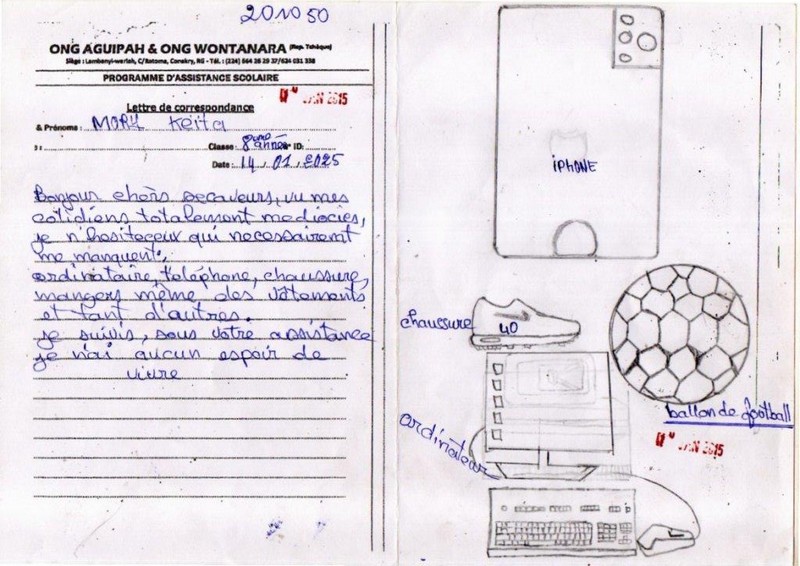 201050
ONG AGUIPAH & ONG WONTANARA (Rep. Tchèque)
Siège : Lambanyi-wariah, C/Ratoma, Conakry, RG - Tél. : (224) 664 28 29 37/624 031 338
PROGRAMME D'ASSISTANCE SCOLAIRE
JAN 2015
Lettre de correspondance
& Prénoms : MORY Keita
Classe : 8ème année ID:
Date : 14 / 01 / 2025
Bonjour chèrs secaveurs, vu mes
cotidiens totalement mediocies,
je n'hesite ceux qui necessairement
me manquent.
ordinataire, teléphone, chaussure,
mangers même des vêtements
et tant d'autres.
je suivis, sous votre assistance
je n'ai aucun espoir de
vivre
iPHONE
chaussure
40
ballon de football
ordinateur
JAN 2015